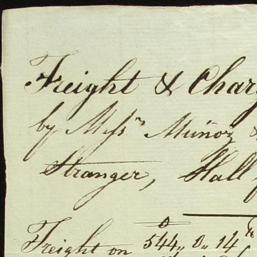 Freight & Char
by Mess.rs Muñoz &
Stranger, Hall
Freight on 544,, 0,, 14